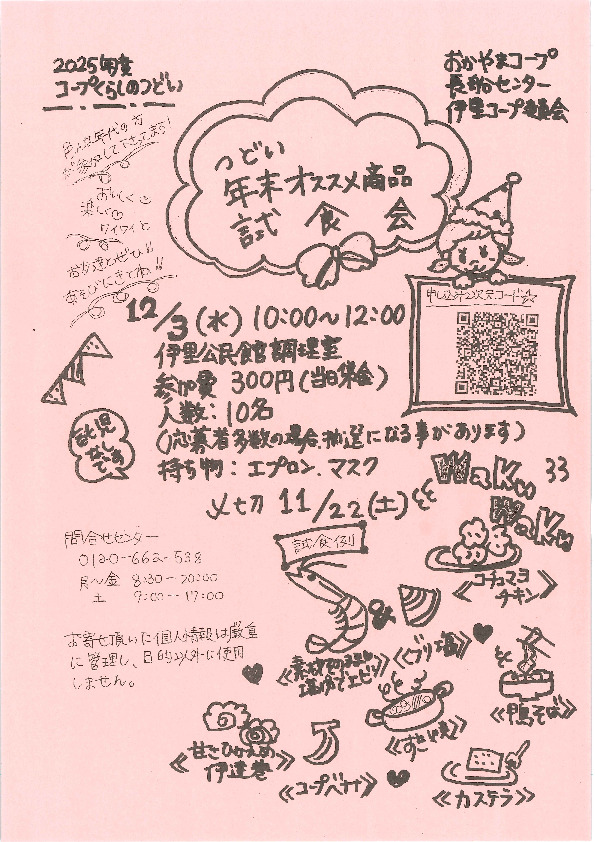 2025年度
コープくらしのつどい
おかやまコープ
長船センター
伊里コープ委員会
色んな年代の方
が参加して下さってます!
おいしく
楽しく
ワイワイと
お友達とぜひ!!
あそびにきてね!!
つどい
年末オススメ商品
試食会
申し込み2次元コード☆
12/3(水) 10:00~12:00
伊里公民館調理室
参加費 300円(当日集金)
人数:10名
(応募者多数の場合、抽選になる事があります)
持ち物:エプロン、マスク
〆切 11/22(土)
託児
なし
です
WaKu
WaKu
問合せセンター
0120-662-538
月~金 8:30-20:00
土 9:00-17:00
お寄せ頂いた個人情報は厳重
に管理し、目的以外に使用
しません。
試食例
&
《コチュマヨ
チキン》
《ブリ塩》
《鴨そば》
《すきやき》
《甘さひかえめ
伊達巻》
《コープバナナ》
《カステラ》